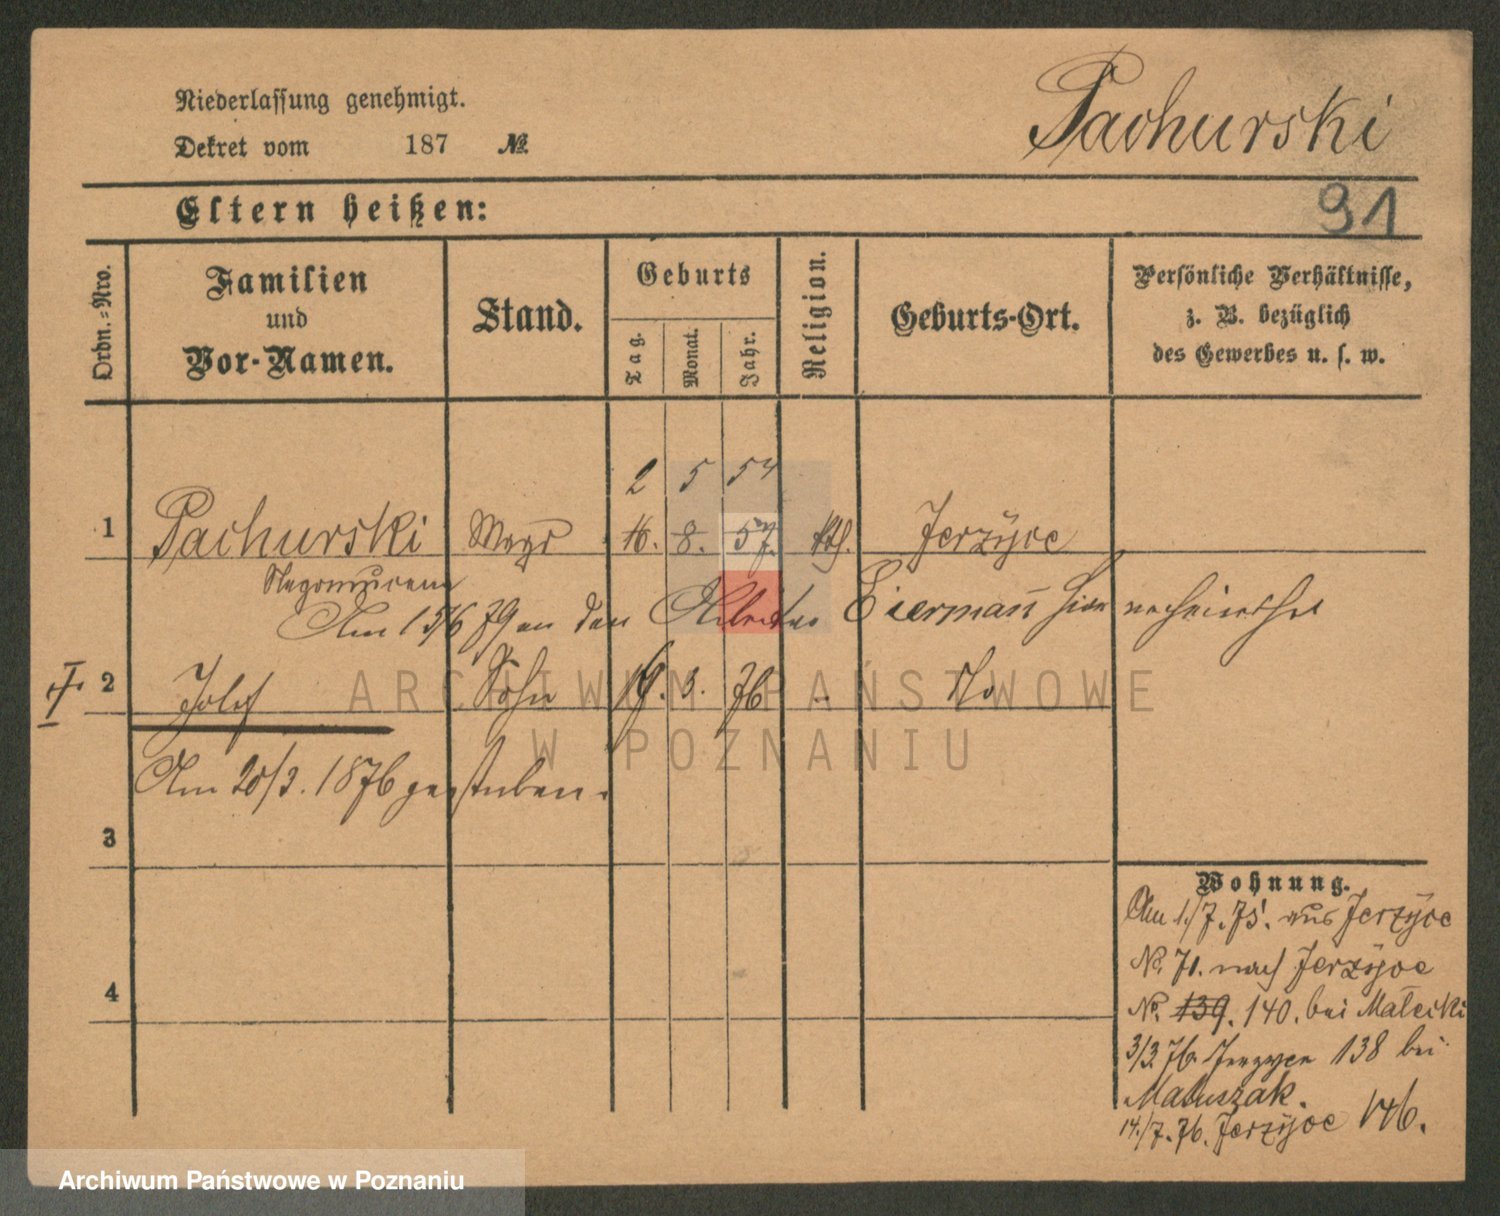 Niederlassung genehmigt.
Dekret vom 187 №
Pachurski
91
Eltern heißen:
Ordn.-Nro.
Familien
und
Vor-Namen.
Stand.
Geburts
Tag.
Monat.
Jahr.
Religion.
Geburts-Ort.
Persönliche Verhältnisse,
z. B. bezüglich
des Gewerbes u. s. w.
2 5 57
1 Pachurski Magd 16. 8. 57. kth. Jerzyce
Am 15/6 79 an den Arbeiter Eiermann hier verheirathet
2 Josef Sohn 19. 3. 76 " do
Am 20/3. 1876 gestorben.
3
4
Wohnung.
Am 1./7. 75. aus Jerzyce
No. 71. nach Jerzyce
No. 139. 140. bei Małecki
3/3 76. Jerzyce 138 bei
Matuszak.
14./7. 76. Jerzyce 146.
ARCHIWUM PAŃSTWOWE
W POZNANIU
Archiwum Państwowe w Poznaniu